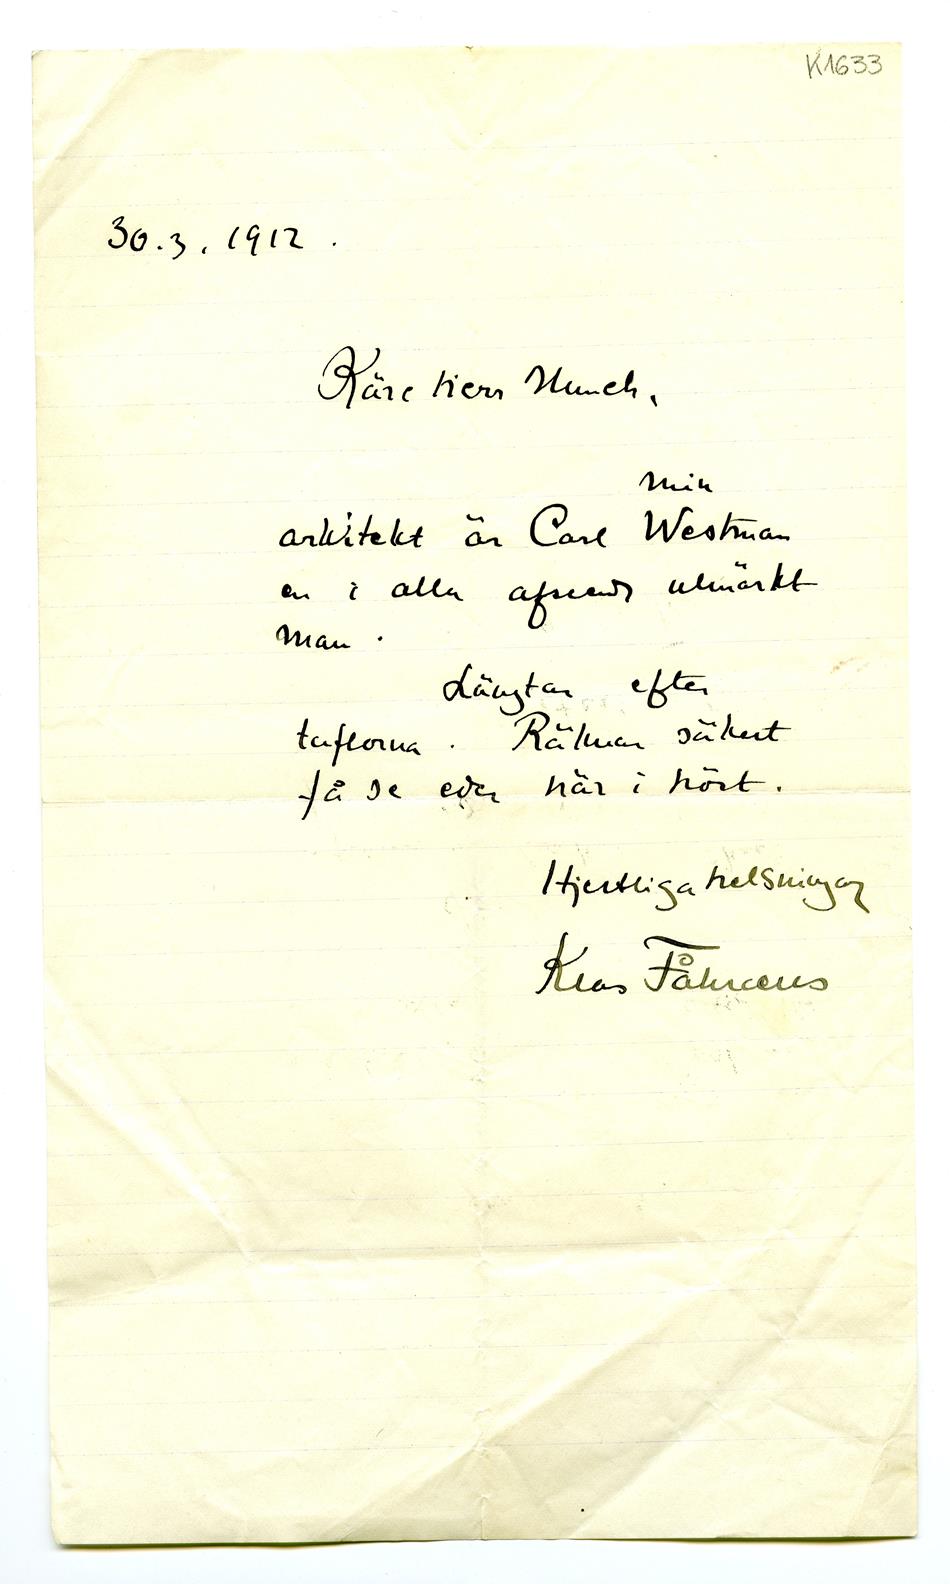 K1633
30.3.1912.
Käre Herr Munch,
min
arkitekt är Carl Westman
en i alla afseende utmärkt
man.
Längtar efter
taflorna. Räknar säkert
få se eder här i höst.
Hjertliga helsningar
Klas Fåhræus